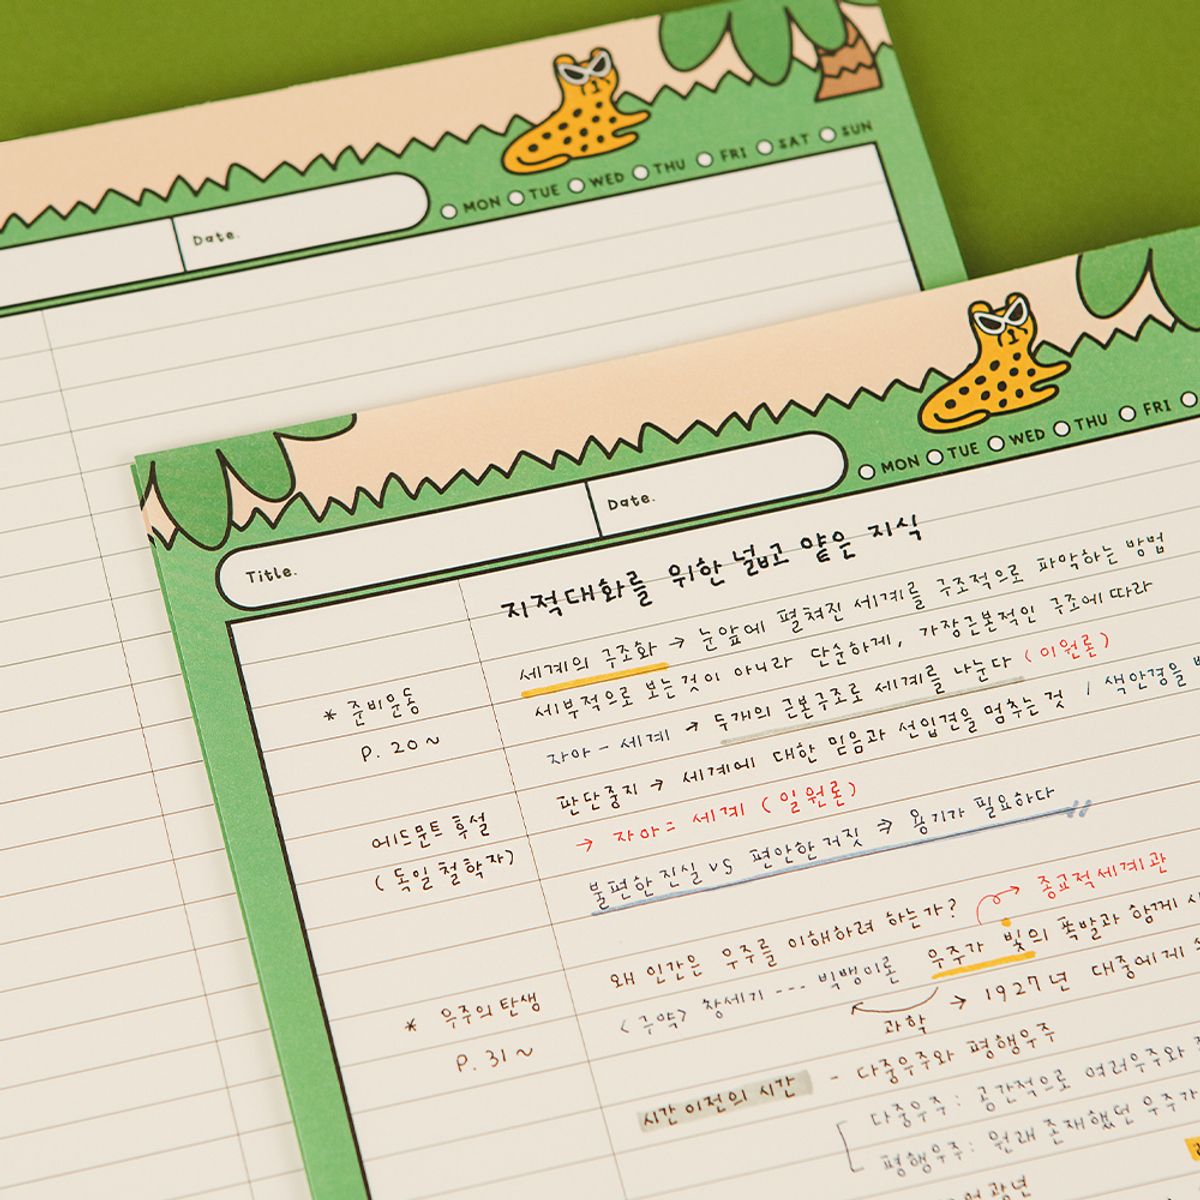 Date.
MON TUE WED THU FRI SAT SUN
Title.
Date.
MON TUE WED THU FRI
지적대화를 위한 넓고 얕은 지식
세계의 구조화 → 눈앞에 펼쳐진 세계를 구조적으로 파악하는 방법
* 준비운동
P. 20 ~
세부적으로 보는것이 아니라 단순하게, 가장근본적인 구조에 따라
자아 - 세계 → 두개의 근본구조로 세계를 나눈다 (이원론)
판단중지 → 세계에 대한 믿음과 선입견을 멈추는 것 / 색안경을
에드문트 후설
(독일 철학자)
→ 자아 = 세계 (일원론)
불편한 진실 vs 편안한 거짓 ⇒ 용기가 필요하다
왜 인간은 우주를 이해하려 하는가?
종교적세계관
* 우주의 탄생
P. 31 ~
<구약> 창세기 --- 빅뱅이론 우주가 빛의 폭발과 함께
과학 → 1927년 대중에게
시간 이전의 시간 - 다중우주와 평행우주
다중우주 : 공간적으로 여러우주와
평행우주 : 원래 존재했던 우주가
광년